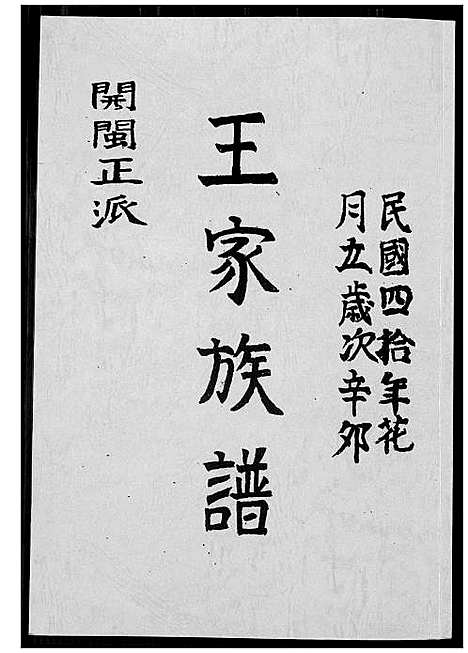 民國四拾年花
月立歲次辛卯
王家族譜
開閩正派